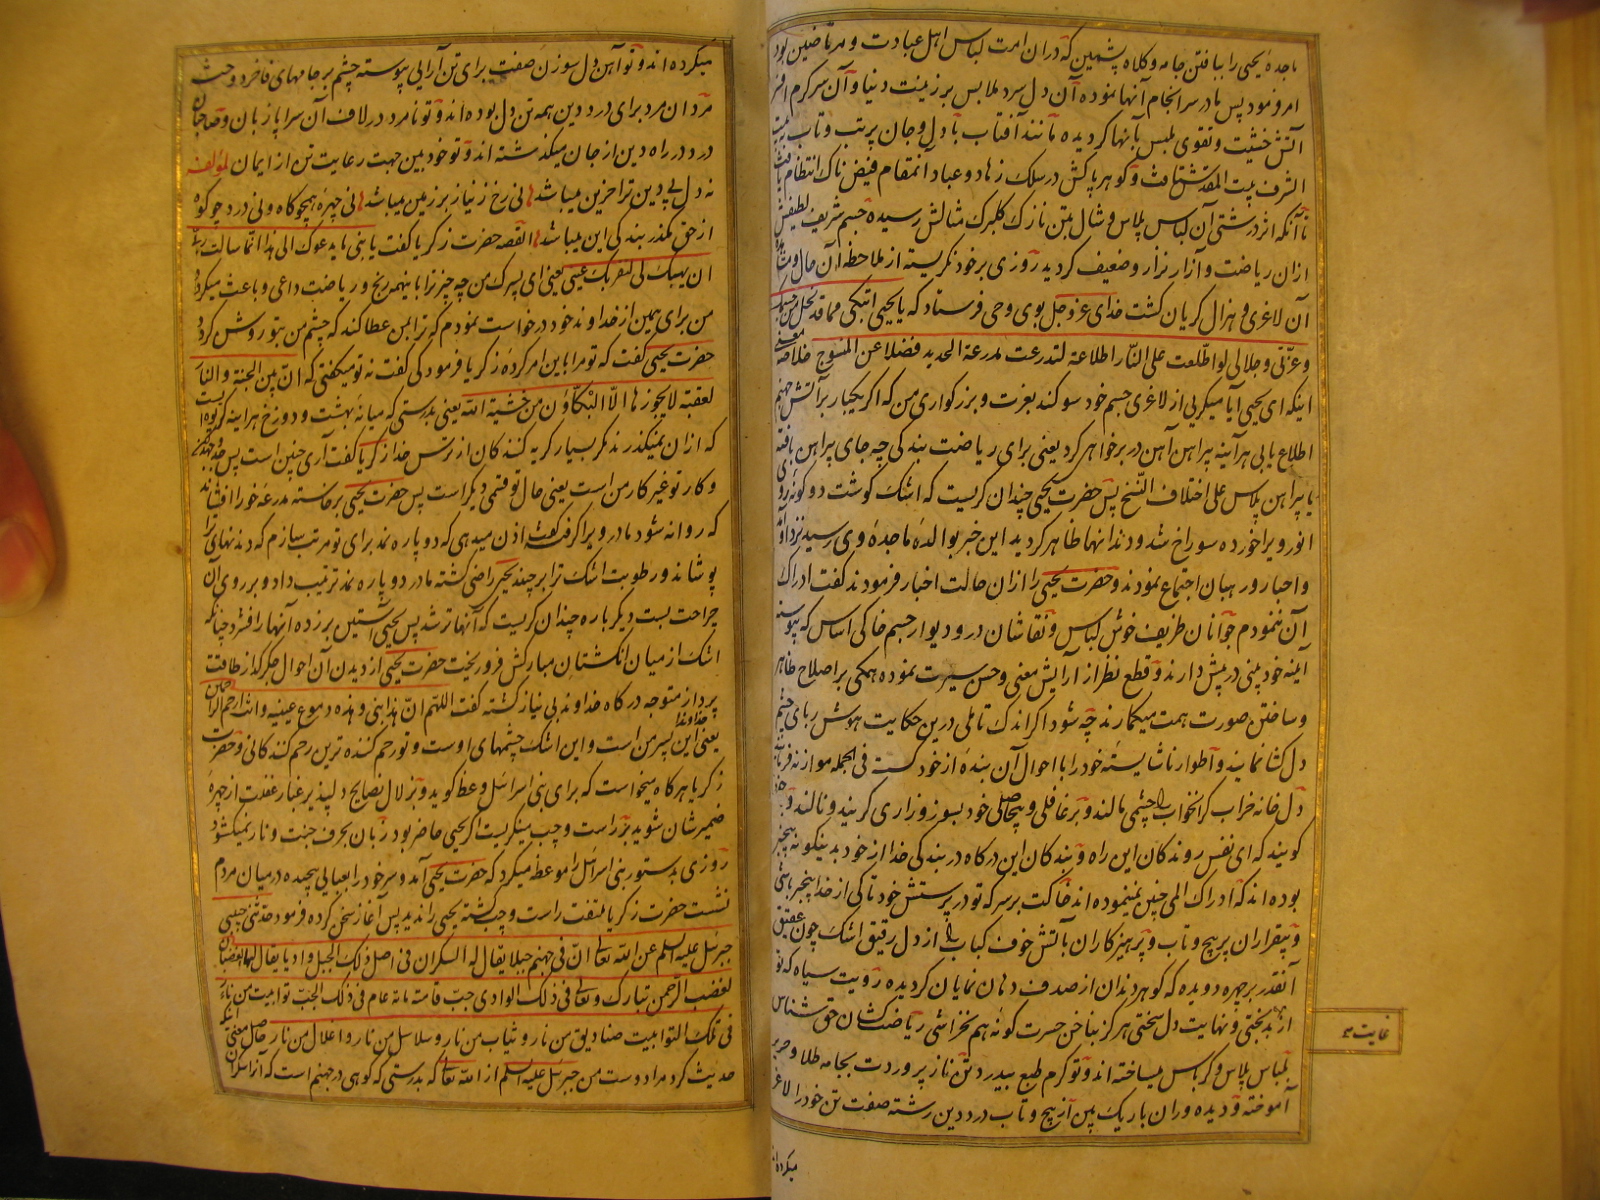 ماجدهٔ یحیی را ببافتن جامه و کلاه پشمین که در ان امت لباس اهل عبادت و مرتاضین بود
امر و مود پس مادر سرانجام آنها نموده آن دل سرد ملابس بر زینت دنیا و آن سرکرم
آتش خشیت و تقوی ملبس بآنها کردیده مانند آفتاب با دل و جان پر تب و تاب به بیت
الشرف بیت المقدس شتافت و کوهر پاکش در سلک زهاد و عباد انمقام فیض ناک انتظام یافت
تا آنکه اثر درشتی آن لباس پلاس و شال بتن نازک کلبرک مثالش رسیده جسم شریف لطیفش
ازان ریاضت و آزار نزار و ضعیف کردید روزی بر خود نکریسته از ملاحظه آن حال
آن لاغری و هزال کریان کشت خدای عز و جل بوی وحی فرستاد که یا یحیی اتبکی مما قد نحل من جسمک
و عزتی و جلالی لو اطلعت علی النار اطلاعة لتدرعت مدرعة الحدید فضلا عن المنسوج خلاصه معنی
اینکه ای یحیی آیا میکریی از لاغری جسم خود سوکند بعزت و بزرکواری من که اکر یکبار بر آتش جهنم
اطلاع یابی هر آینه پیراهن آهن در بر خواهی کرد یعنی برای ریاضت بندکی چه جای پیراهن بافته
یا پیراهن پلاس علی اختلاف النسخ پس حضرت یحیی چندان کریست که اشک کوشت دو کونه روی
انور ویرا خورده سوراخ شد و دندانها ظاهر کردید این خبر بوالدهٔ ماجدهٔ وی رسید نزد او آمد
و احبار و رهبان اجتماع نمودند و حضرت یحیی را ازان حالت اخبار فرمودند کفت ادراک
آن ننمودم جوانان ظریف خوش لباس و نقاشان در و دیوار جسم خاکی اساس که پیوسته
آینه خود بینی در پیش دارند و قطع نظر از آرایش معنی و حسن سیرت نموده همکی بر اصلاح ظاهر
و ساختن صورت همت میکمارند چه شود اکر اندک تاملی درین حکایت هوش ربای چشم
دل کشا نمایند و اطوار ناشایسته خود را با احوال آن بندهٔ از خود کسسته فی الجمله موازنه فرمایند
دل خانه خراب کرانخواب را چشمی مالند و بر غافلی و بیحاصلی خود بسوز و زاری کریند و نالند و
کویند که ای نفس روندکان این راه و بندکان این درکاه در بندکی خدا از خود بدینکونه بیخبر
بوده اند که ادراک المی چنین نمینموده اند خاکت بر سر که تو در پرستش خود تا کی از خدا بیخبر باشی
و بیقراران پر پیچ و تاب و پرهیزکاران بآتش خوف کباب را از دل رقیق اشک چون عقیق
آنقدر بر چهره دویده که کوهر دندان از صدف دهان نمایان کردیده رویت سیاه که تو
از بدبختی و نهایت دل سختی هرکز بناخن حسرت کونه هم نخراشی ریاضت کشان حق شناس
بلباس پلاس و کرباس میساخته اند و تو کرم طبع بیدرد تن ناز پروردت بجامه طلا و حریر
آموخته و دیده وران باریک بین از پیچ و تاب درد دین رشته صفت تن خود را لاغر
میکرده اند
غایت ۳
میکرده اند و تو آهن دل سوزن صفت برای تن آرایی پیوسته چشم بر جامهای فاخر دوخته
مردان مرد برای درد دین همه تن دل بوده اند و تو نامرد در لاف آن سراپا زبان و صاحبان
درد در راه دین از جان میکذشته اند و تو خودبین جهت رعایت تن از ایمان لمؤلفه
نه دل پی دین ترا حزین میباشد نی رخ ز نیاز بر زمین میباشد نی چهره همچو کاه و نی درد چو کوه
از حق مکذر بندکی این میباشد القصه حضرت زکریا کفت یا بنی ما یدعوک الی هذا انما سالت ربی
ان یهبک لی لتقر بک عینی یعنی ای پسرک من چه چیز ترا باینهمه رنج و ریاضت داعی و باعث میکردد
من برای همین از خداوند خود درخواست نمودم که ترا بمن عطا کند که چشم من بتو روشن کردد
حضرت یحیی کفت که تو مرا باین امر کرده زکریا فرمود کی کفت نه تو میکفتی که ان بین الجنة و النار
لعقبة لا یجوزها الا البکاؤن من خشیة الله یعنی بدرستی که میانه بهشت و دوزخ هراینه کریوه ایست
که ازان نمیکذرند مکر بسیار کریه کنندکان از ترس خدا زکریا کفت آری چنین است پس جد و جهد کن
و کار تو غیر کار من است یعنی حال تو قسمی دیکر است پس حضرت یحیی برخاسته مدرعه خود را افشاند
که روانه شود مادر ویرا کرفت کفت اذن میدهی که دو پاره نمد برای تو مرتب سازم که دندنهای ترا
پوشاند و رطوبت اشک ترا برچیند یحیی راضی کشته مادر دو پاره نمد ترتیب داد و بر روی آن
جراحت بست دیکر باره چندان کریست که آنها تر شد پس یحیی آستین برزده آنها را افشرد چنانکه
اشک از میان انکشتان مبارکش فرو ریخت حضرت یحیی از دیدن آن احوال جکر کداز طاقت
پرداز متوجه درکاه خداوند بی نیاز کشته کفت اللهم ان هذا ابنی و هذه دموع عینیه و انت ارحم الراحمین
یعنی خداوندا این پسر من است و این اشک چشمهای اوست و تو رحم کننده ترین رحم کنندکانی و حضرت
زکریا هرکاه میخواست که برای بنی اسرائیل وعظ کوید و بزلال نصایح دلپذیر غبار غفلت از چهره
ضمیرشان شوید بر راست و چپ مینکریست اکر یحیی حاضر بود زبان بحرف جنت و نار نمیکشود
روزی بدستور بنی اسرائیل را موعظه میکرد که حضرت یحیی آمد و سر خود را بعبایی پیچیده در میان مردم
نشست حضرت زکریا ملتفت راست و چپ کشته یحیی را ندید پس آغاز سخن کرده فرمود حدثنی حبیبی
جبرئیل علیه السلم عن الله تعالی ان فی جهنم جبلا یقال له السکران فی اصل ذلک الجبل واد یا یقال لها الغضبان
لغضب الرحمن تبارک و تعالی فی ذلک الوادی جب قامته مائة عام فی ذلک الجب توابیت من نار
فی تلک التوابیت صنادیق من نار و ثیاب من نار و سلاسل من نار و اغلال من نار حاصل معنی آنکه
حدیث کرد مرا دوست من جبرئیل علیه السلم از الله تعالی که بدرستی که کوهی در جهنم است که آنرا سکران